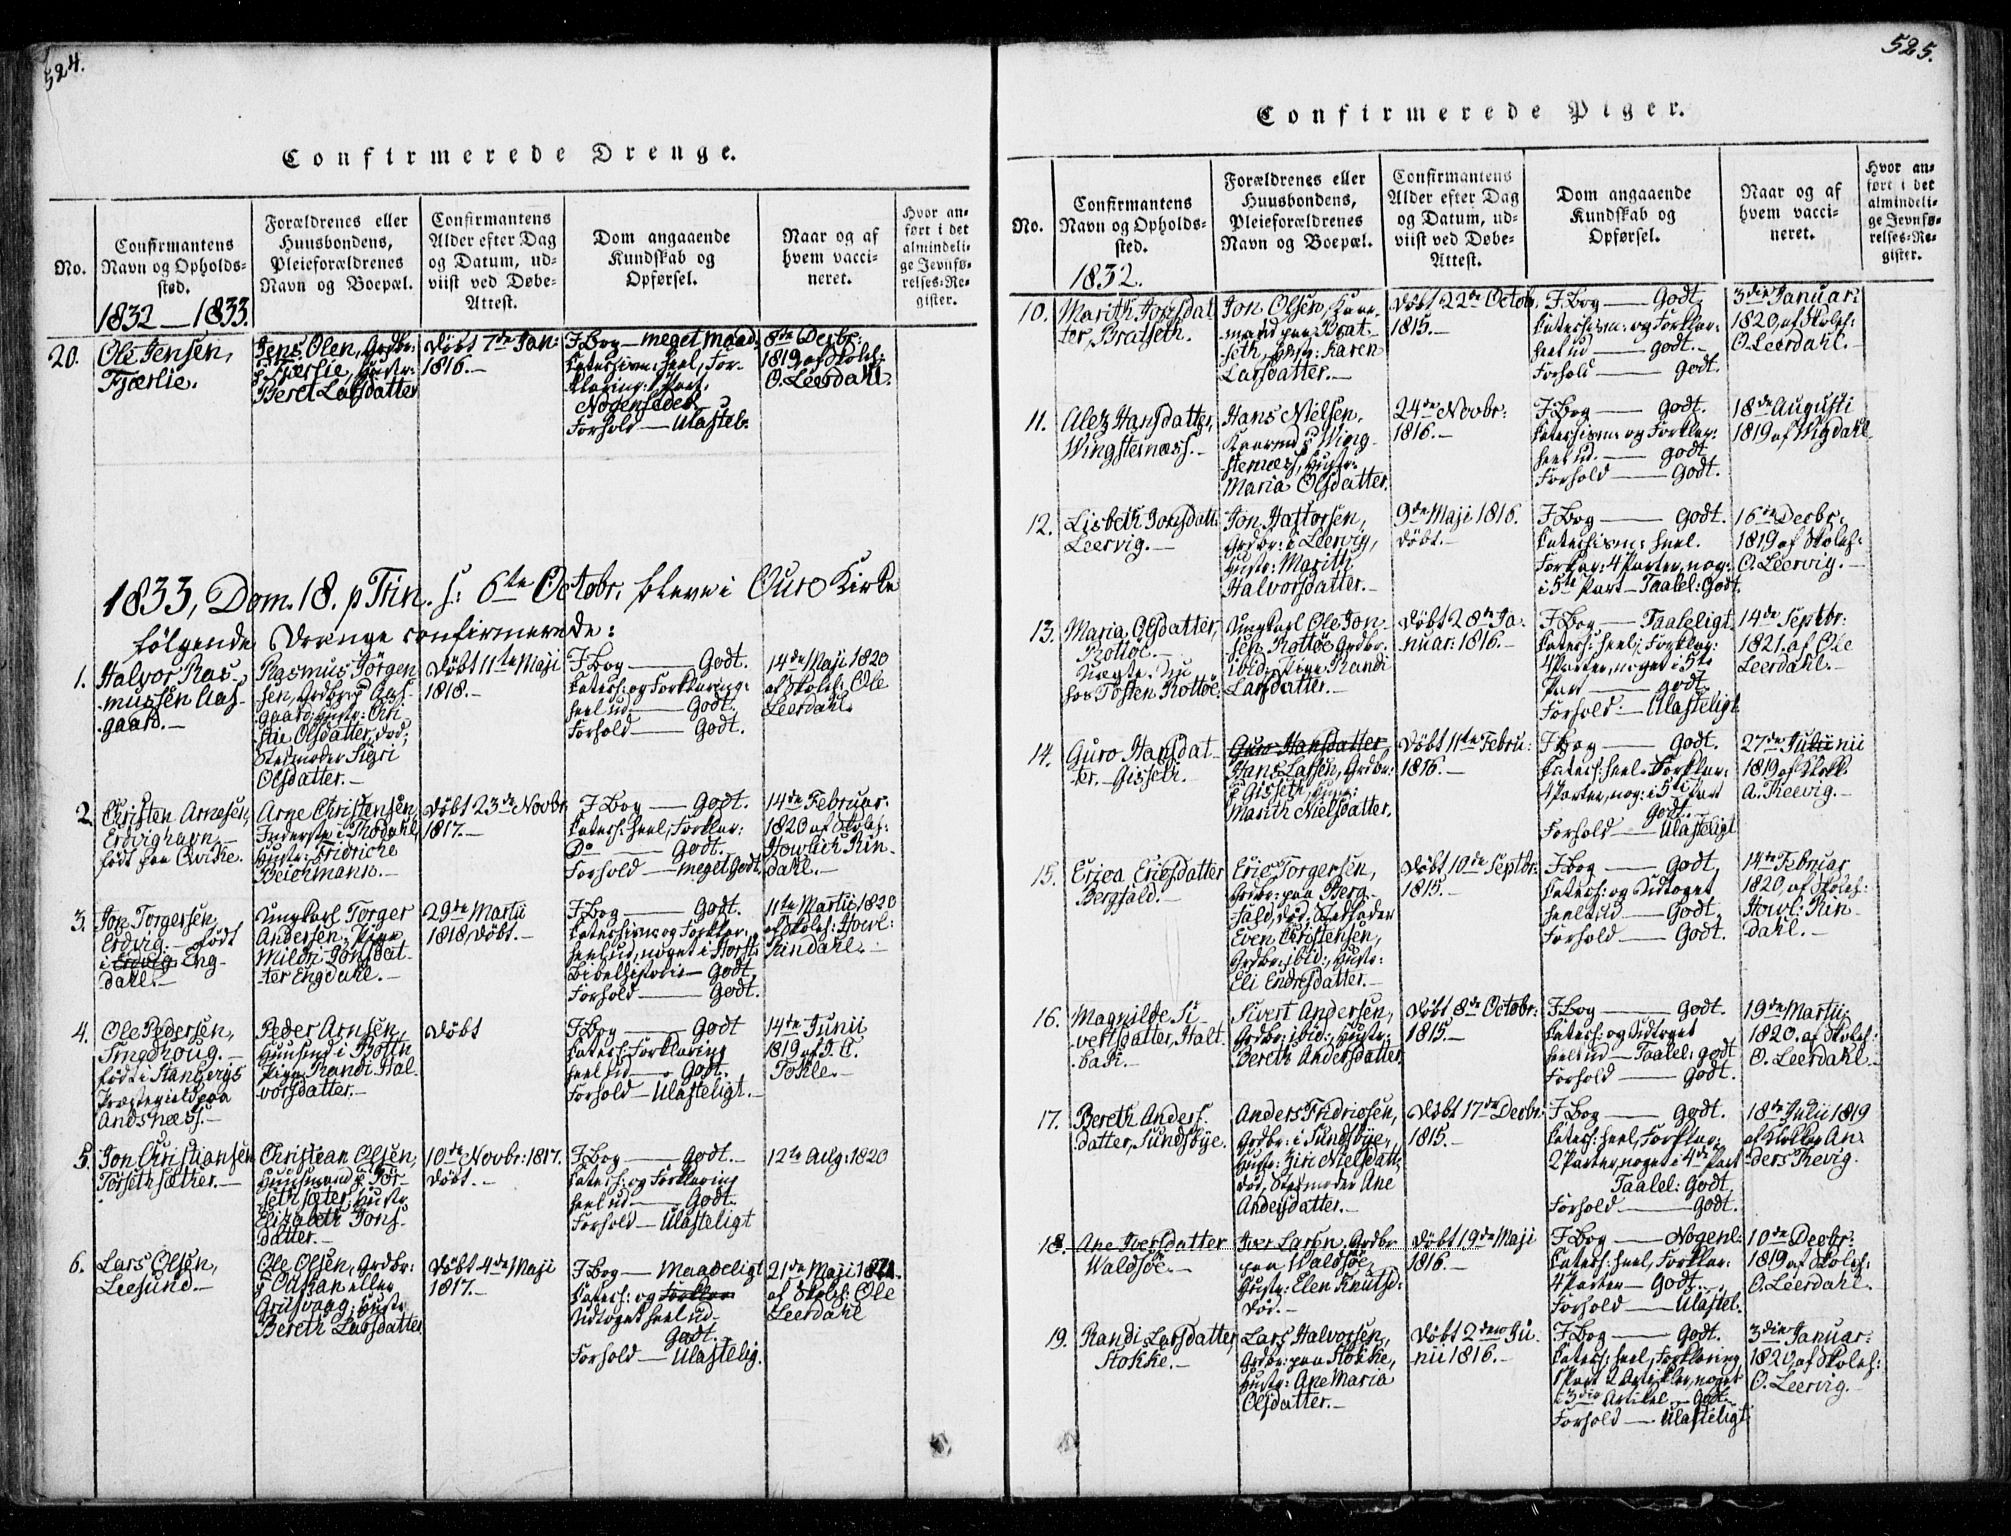 524.
Confirmerede Drenge.
No.
Confirmantens
Navn og Opholds-
sted.
1832 — 1833.
Forældrenes eller
Huusbondens,
Pleieforældrenes
Navn og Boepæl.
Confirmantens
Alder efter Dag
og Datum, ud-
viist ved Døbe-
Attest.
Dom angaaende
Kundskab og
Opførsel.
Naar og af
hvem vacci-
neret.
Hvor an-
ført i det
almindeli-
ge Jevnfø-
relses-Re-
gister.
20.
Ole Jensen,
Fjærlie.
Jens Olsen, Grdbr:
p Fjærlie, Hustr:
Beret Larsdatter
Døbt 7de Jan:
1816.—
I Bog — meget maad
Catechism: heel, For-
klaring: 1 Part.
Nogensedes
Forhold — Ulasteb.
8de Decbr:
1819 af Skoleh:
O. Leerdahl.
1833, Dom. 18. p Trin. s: 6te Octobr. bleve i Oure Kirke
følgende Drenge confirmerede:
1.
Halvor Ras-
mussen Aas-
gaard.—
Rasmus Jørgen-
sen, Grdbr p Aas-
gaard, Hustr: Chri-
stie Olsdatter, død;
Stedmoder Sigri
Olsdatter.—
Døbt 11te Maji
1818.—
I Bog — Godt.
Catech: og Forklaring:
heel ud — Godt.
Forhold — Godt.
14de Maji 1820
af Skoleh: Ole
Leerdahl.
2.
Christen Arnesen,
Ervighavn.—
født paa Qvikne.
Arne Christensen,
Inderste i Thodahl,
Hustr: Fridriche
Beichmann.—
Døbt 23de Novbr:
1817.—
I Bog — Godt.
Catech: heel, Forklar:
Do — Godt.
Forhold — meget Godt.
14de Februar:
1820 af Skoleh:
Howlich Rin-
dahl.—
3.
Jon Torgersen,
Erdvig.— født
i Eng-
dahl.—
Ungkarl Torger
Andersen, Pige
Mildri Jonsdat-
ter Engdahl.—
29de Martii
1818, døbt.—
I Bog — Godt.
Catechism: og Forklar:
heel ud, noget i
Bibelhistorie — Godt
Forhold — Godt.
11te Martii 1820
af Skoleh: Howl:
Rindahl.—
4.
Ole Pedersen,
Singdhoug.—
født i Stangvigs
Præstegield paa
Andsnæss.—
Peder Arnsen,
Huusmd i Botten
Pige Randi Hal-
vorsdatter.—
Døbt
I Bog — Godt
Catech: Forklaring
heel ud — Godt.
Forhold — Ulasteligt.—
14de Junii
1819 af J. C.
Tokle.—
5.
Jon Christiansen
Torsethsæther.—
Christian Olsen,
Huusmand p Tor-
sethsæter, Hustr
Elizabeth Jons-
datter.—
10de Novbr: 1817.
døbt.—
I Bog — Godt.—
Catech: og Forklaring
heel ud — Godt.
Forhold — Ulasteligt
12te Aug: 1820
6.
Lars Olsen,
Leesund.—
Ole Olsen, Grdbr:
eller
Grisvaag; Hustr
Bereth Larsdatter
Døbt 4de Maji
1817.—
I Bog — Maadeligt
Catech: og Forklar
Udtoget heel ud—
Godt.
Forhold — Ulastelig.
21de Maji
af Skoleh: Ole
Leerdahl
525.
Confirmerede Piger.
No.
Confirmantens
Navn og Opholds-
sted.
1832.
Forældrenes eller
Huusbondens,
Pleieforældrenes
Navn og Boepæl.
Confirmantens
Alder efter Dag
og Datum, ud-
viist ved Døbe-
Attest.
Dom angaaende
Kundskab og
Opførsel.
Naar og af
hvem vacci-
neret.
Hvor an-
ført i det
almindeli-
ge Jevnfø-
relses-Re-
gister.
10.
Marith Jonsdat-
ter, Bratseth.
Jon Olsen, Kaar-
mand paa Brat-
seth, Hustr: Karen
Larsdatter.—
Døbt 22de Octob.
1815.—
I Bog — Godt.
Catechism: og Forklar:
heel ud — Godt.—
Forhold — Godt.
3die Januar:
1820, af Skoleh:
O. Leerdahl.—
11.
Aletz Hansdatter,
Wingsternæss.—
Hans Nielsen,
Kaarmd p Wing-
sternæss, Hustr:
Maria Olsdatter.
24de Novbr:
1816.—
I Bog — Godt.
Catechism: og Forklar:
heel ud. — Godt
Forhold — Godt.
18de Augusti
1819 af Wigdahl
12.
Lisbeth Jonsdatt:
Leervig.—
Jon Hastorsen,
Grdbr: i Leervig,
Hustr: Marith
Halvorsdatter.—
9de Maji 1816.
døbt.—
I Bog — Godt.
Catechism: heel.
Forklar: 4 Parter, nog:
i 5te Part — Taalel: Godt.
16de Decbr:
1819 af Skoleh:
O. Leervig.—
13.
Maria Olsdatter,
Rottøe.—
hos Tosten Rottøe
Ungkarl Ole Jon-
sen Rottøe Grdbr:
ibid: Pige Randi
Larsdatter.—
Døbt 28de Ja-
nuar: 1816.—
I Bog — Taaleligt
Catech: heel, Forklar:
4 Parter, noget i 5te
Part — Godt
Forhold — Ulasteligt
14de Septbr:
1821. af Ole
Leerdahl.—
14.
Guro Hansdat-
ter. Gisseth.—
Guro Hansdatter
Hans Larsen, Grdbr:
p Gisseth, Hustr:
Marith Nielsdatter.
Døbt 11te Febru:
1816.—
I Bog — Godt.
Catech: heel Forklar:
4 Parter, nog: i 5te Part
Godt.
Forhold — Ulasteligt
27de
1819 af Klok.
A. Reevig.—
15.
Erica Ericsdatter
Bergfald.—
Eric Torgersen,
Grdbr: paa Berg-
fald, død; Stedfader
Even Christensen,
Grdbr: ibid:, Hustr:
Eli Endresdatter.—
Døbt 10de Septbr:
1815.—
I Bog — Godt,
Catech: og Udtoget
heel ud — Godt
Forhold — Godt.
14de Februar
1820, af Skoleh:
Howl: Rin-
dahl.—
16.
Magnilde Si-
vertsdatter, Halt-
bak.—
Sivert Andersen,
Grdbr: ibid:, Hustr:
Bereth Andersdatter
Døbt 8de Octobr:
1815.—
I Bog — Godt.
Catech: og Udtoget
heel ud — Taalel: Godt
Forhold — Godt.
19de Martii
1820. af Skoleh:
O. Leerdahl.—
17.
Bereth Anders-
datter, Sundsbye.
Anders Fridricsen,
Grdbr: i Sundsbye,
Hustr: Ziri Nielsdatt:
død, Stedmoder Ane
Andersdatter.—
Døbt 17de Decbr:
1815.—
I Bog — Godt.
Catech: heel, Forklar:
2 Parter, noget i 4de Part
Taalel: Godt
Forhold — Godt.
18de Julii 1819
af Klokker An-
ders Revig.
18.
Ane Iversdatter
Waldsøe.—
Iver Larsen, Grdbr
paa Waldsøe,
Hustr: Elen Knutsd:
død.—
Døbt 19de Maji
1816.—
I Bog — Nogenl:
Catech: heel, Forklar:
4 Parter — Godt
Forhold — Ulastel.
10de Decbr:
1819. af Skoleh:
O. Leerdahl.
19.
Randi Larsdatter,
Stokke.—
Lars Halvorsen,
Grdbr: paa Stokke,
Hustr: Ane Maria
Olsdatter.—
Døbt 2den Ju-
nii 1816.—
I Bog — Godt.
Catech: heel, Forklaring
1 Part 2 Artikler, noget
i 3die Artikel — Godt.
Forhold — Ulasteligt
3die Januar:
1820, af Skoleh:
O. Leervig.—